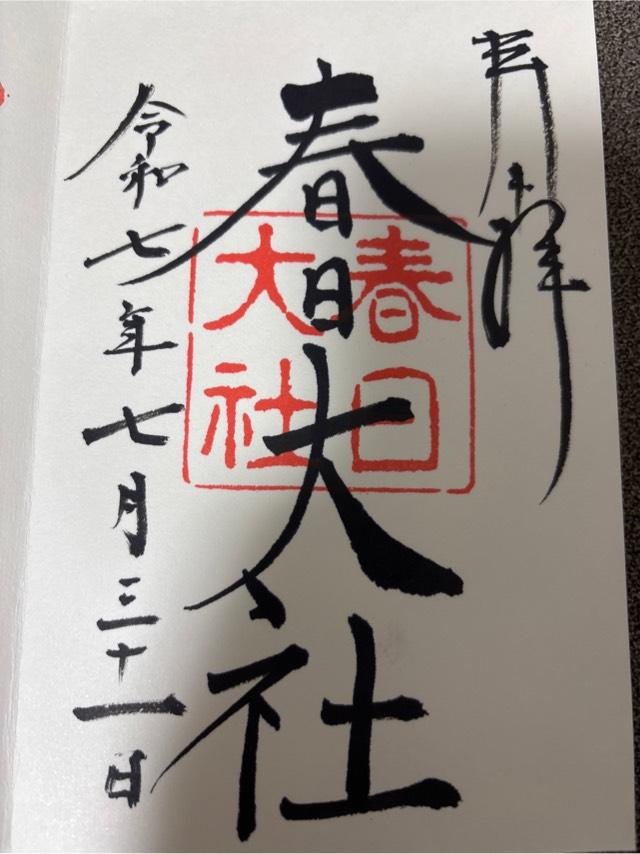 奉拝
春日大社
春日
大社
令和七年七月三十一日